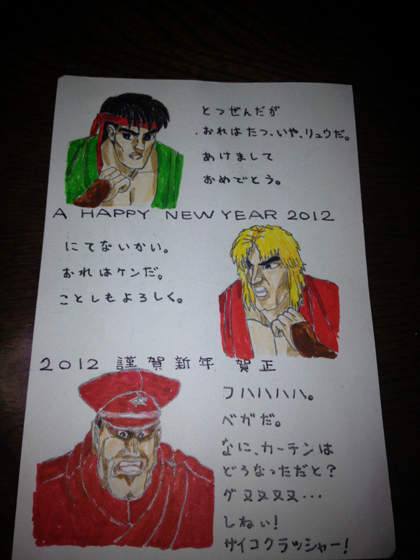 とつぜんだが
おれはたつ、いや、リュウだ。
あけまして
おめでとう。
A HAPPY NEW YEAR 2012
にてないかい。
おれはケンだ。
ことしもよろしく。
2012 謹賀新年 賀正
フハハハハ。
ベガだ。
なに、カーテンは
どうなっただと？
グヌヌヌ…
しねぃ！
サイコクラッシャー！